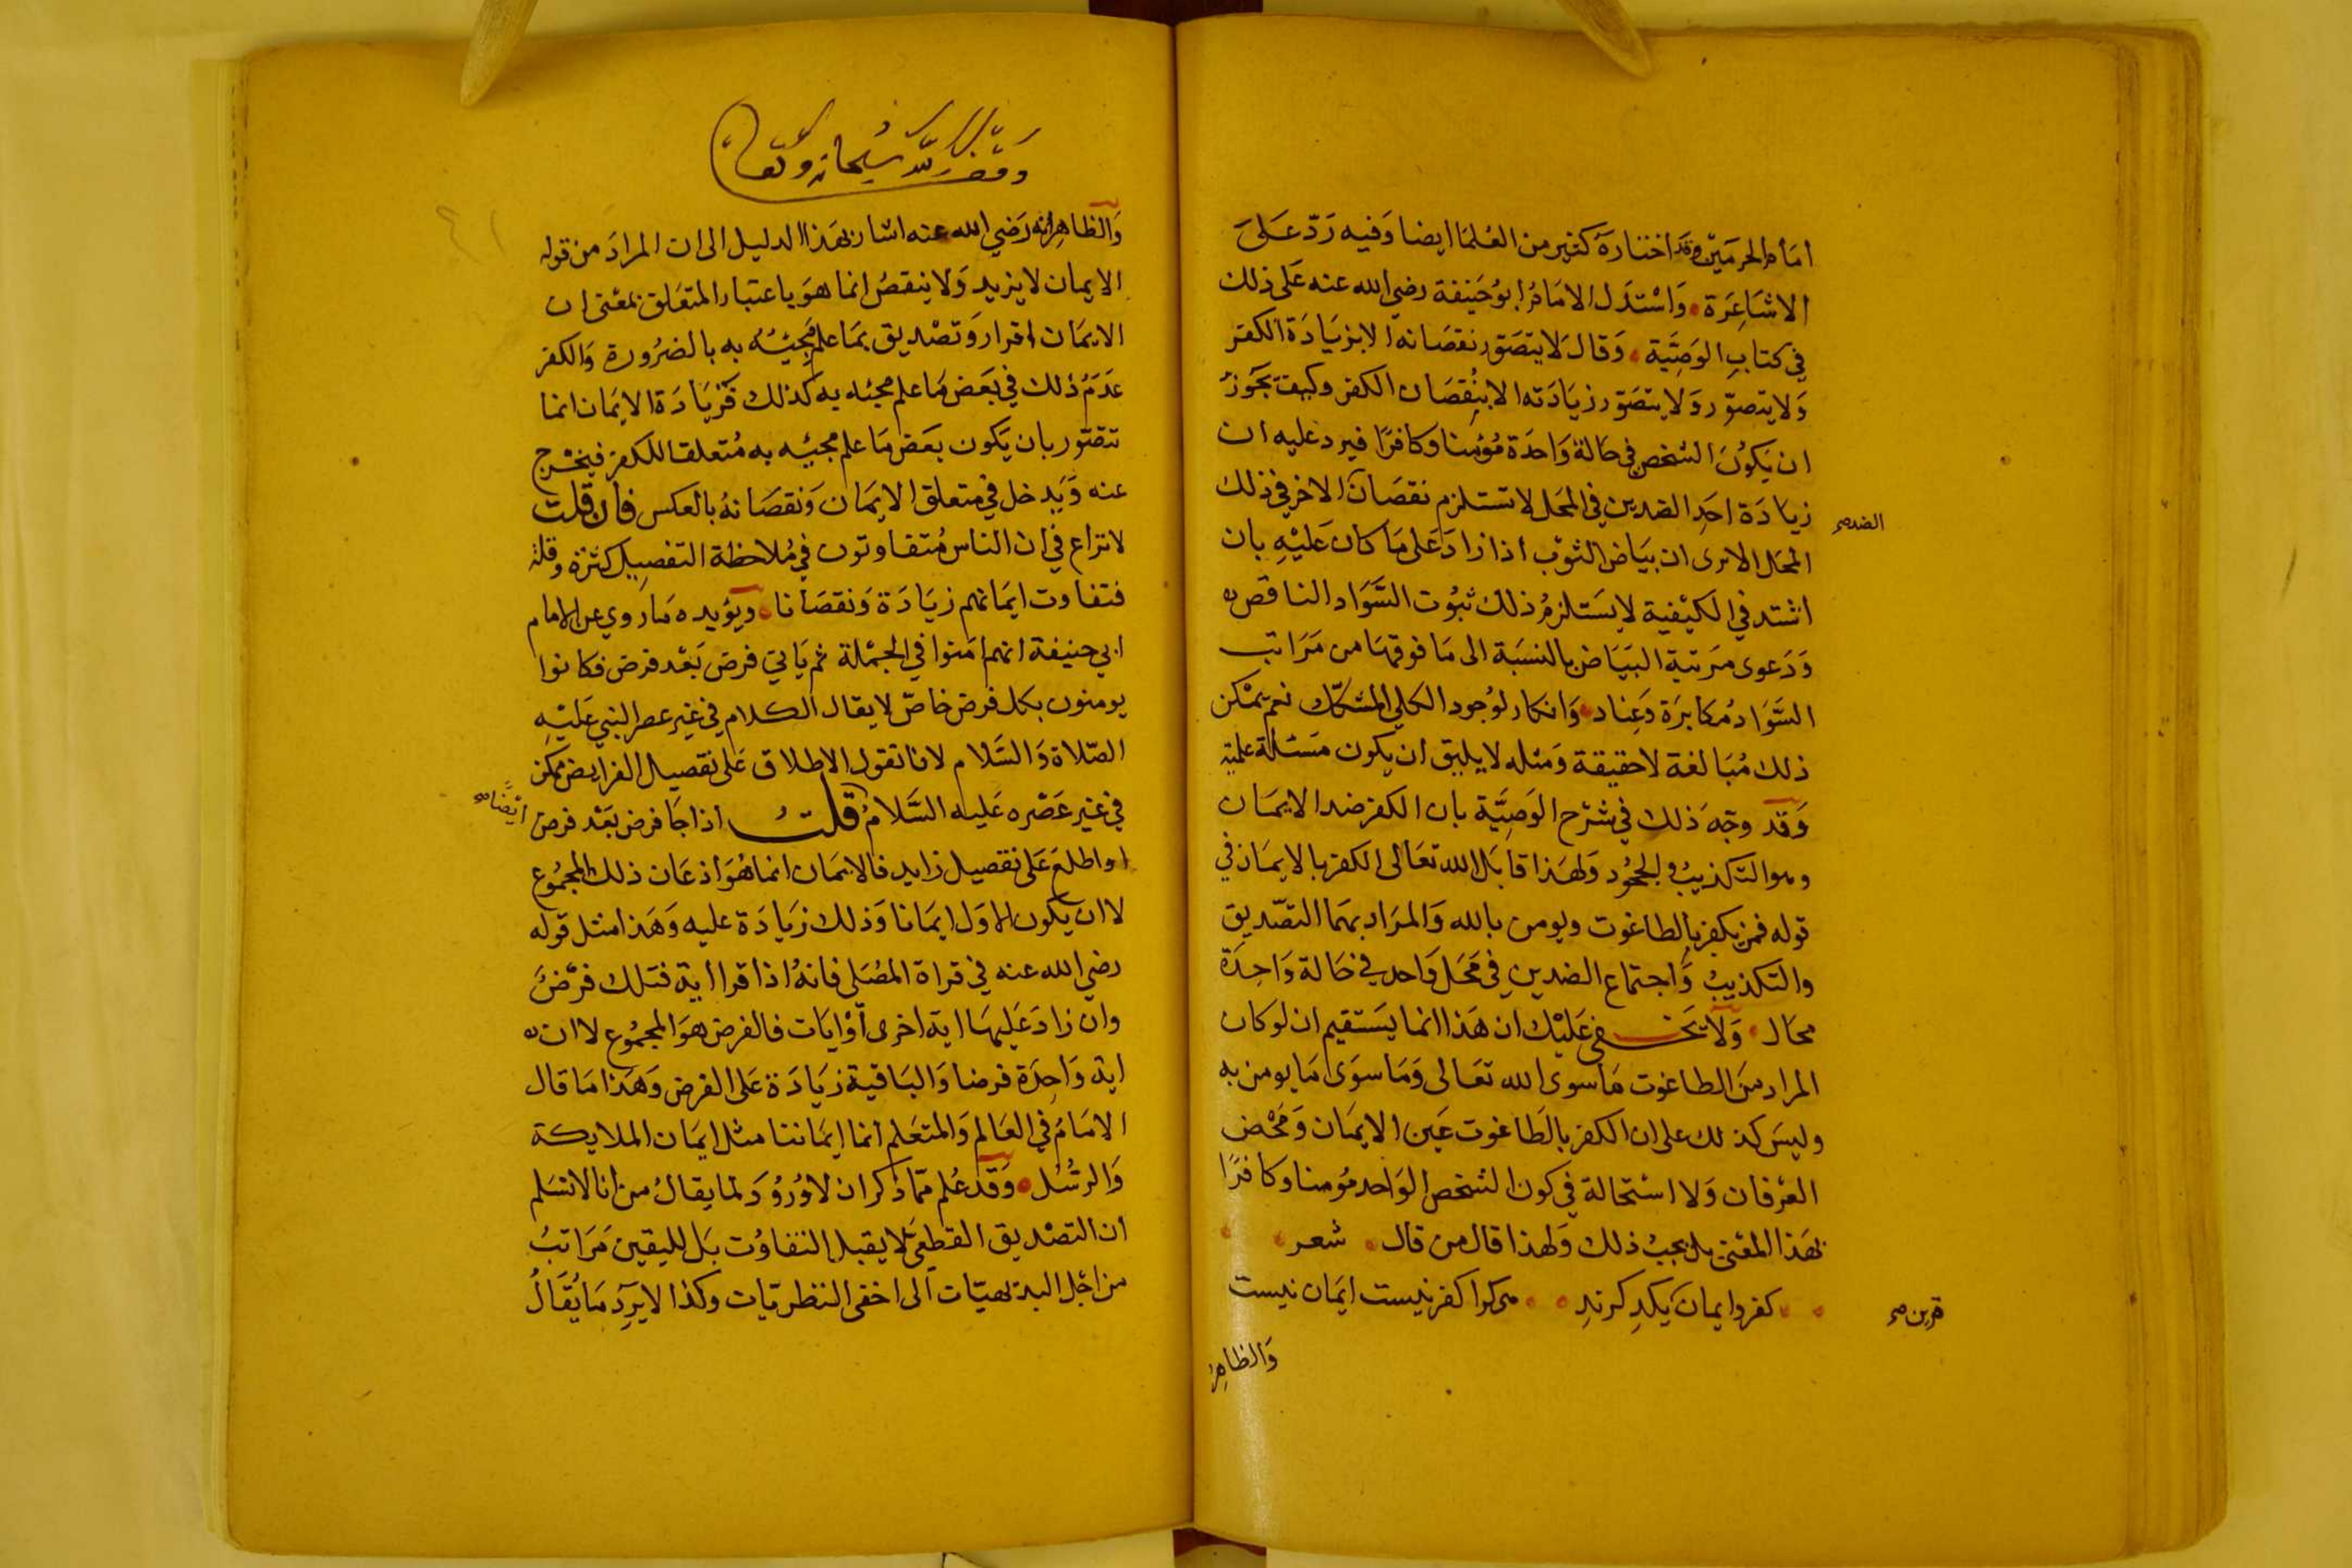 امام الحرمين وقد اختاره كثير من العلما ايضا وفيه رد على
الاشاعرة واستدل الامام ابو حنيفة رضي الله عنه على ذلك
في كتاب الوصية وقال لا يتصور نقصانه الا بزيادة الكفر
ولا يتصور ولا يتصور زيادته الا بنقصان الكفر وكيف يجوز
ان يكون الشخص في حالة واحدة مؤمنا وكافرا فيرد عليه ان
زيادة احد الضدين في المحل لا تستلزم نقصان الاخر في ذلك
الضد صح
المحل الا ترى ان بياض الثوب اذا زاد على ما كان عليه بان
اشتد في الكيفية لا يستلزم ذلك ثبوت السواد الناقص
ودعوى مرتبة البياض بالنسبة الى ما فوقها من مراتب
السواد مكابرة وعناد وانكار لوجود الكلي المشكك نعم يمكن
ذلك مبالغة لا حقيقة ومثله لا يليق ان يكون مسئلة علمية
وقد وجه ذلك في شرح الوصية بان الكفر ضد الايمان
وهو التكذيب والجحود ولهذا قابل الله تعالى الكفر بالايمان في
قوله فمن يكفر بالطاغوت ويومن بالله والمراد بهما التصديق
والتكذيب واجتماع الضدين في محل واحد في حالة واحدة
محال ولا يخفى عليك ان هذا انما يستقيم ان لو كان
المراد من الطاغوت ما سوى الله تعالى وما سوى ما يومن به
وليس كذلك على ان الكفر بالطاغوت عين الايمان ومحض
العرفان ولا استحالة في كون الشخص الواحد مؤمنا وكافرا
بهذا المعنى بل يجب ذلك ولهذا قال من قال شعر
كفر وايمان يكد كرند هركوا كفر نيست ايمان نيست
قرين صح
والظاهر
وقف لله سبحانه وتعالى
٤١
والظاهر انه رضي الله عنه اشار بهذا الدليل الى ان المراد من قوله
الايمان لا يزيد ولا ينقص انما هو باعتبار المتعلق بمعنى ان
الايمان اقرار وتصديق بما علم مجيئه به بالضرورة والكفر
عدم ذلك في بعض ما علم مجئه به كذلك فزيادة الايمان انما
تتصور بان يكون بعض ما علم مجيئه به متعلقا للكفر فيخرج
عنه ويدخل في متعلق الايمان ونقصانه بالعكس فان قلت
لا نزاع في ان الناس متفاوتون في ملاحظة التفصيل كثرة وقلة
فتفاوت ايمانهم زيادة ونقصانا ويؤيده ما روي عن الامام
ابي حنيفة انهم امنوا في الجملة ثم ياتي فرض بعد فرض فكانوا
يومنون بكل فرض خاص لا يقال الكلام في غير عصر النبي عليه
الصلاة والسلام لانا نقول الاطلاق على تفصيل الفرايض ممكن
في غير عصره عليه السلام قلت اذا جا فرض بعد فرض
ايضا صح
او اطلع على تفصيل زايد فالايمان انما هو اذعان ذلك المجموع
لا ان يكون الاول ايمانا وذلك زيادة عليه وهذا مثل قوله
رضي الله عنه في قراة المصلى فانه اذا قرا اية فتلك فرض
وان زاد عليها اية اخرى او ايات فالفرض هو المجموع لا ان
اية واحدة فرضا والباقية زيادة على الفرض وهذا ما قال
الامام في العالم والمتعلم انما ايماننا مثل ايمان الملايكة
والرسل وقد علم مما ذكر ان لا ورود لما يقال من انا لا نسلم
ان التصديق القطعي لا يقبل التفاوت بل لليقين مراتب
من اجل البديهيات الى اخفى النظريات وكذا لا يرد ما يقال